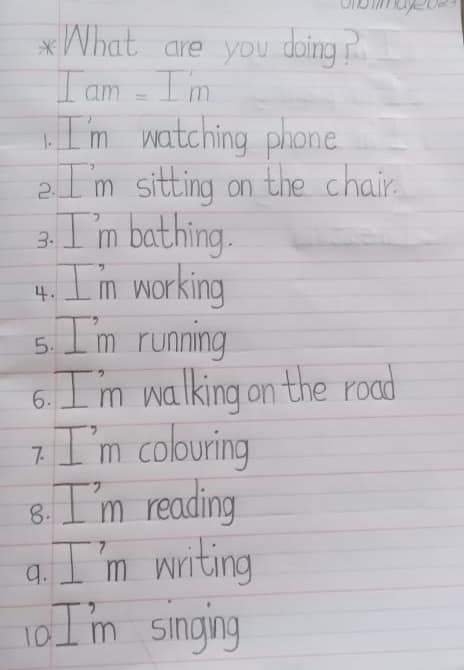 * What are you doing?
I am = I'm
1. I'm watching phone
2. I'm sitting on the chair.
3. I'm bathing.
4. I'm working
5. I'm running
6. I'm walking on the road
7. I'm colouring
8. I'm reading
9. I'm writing
10 I'm singing